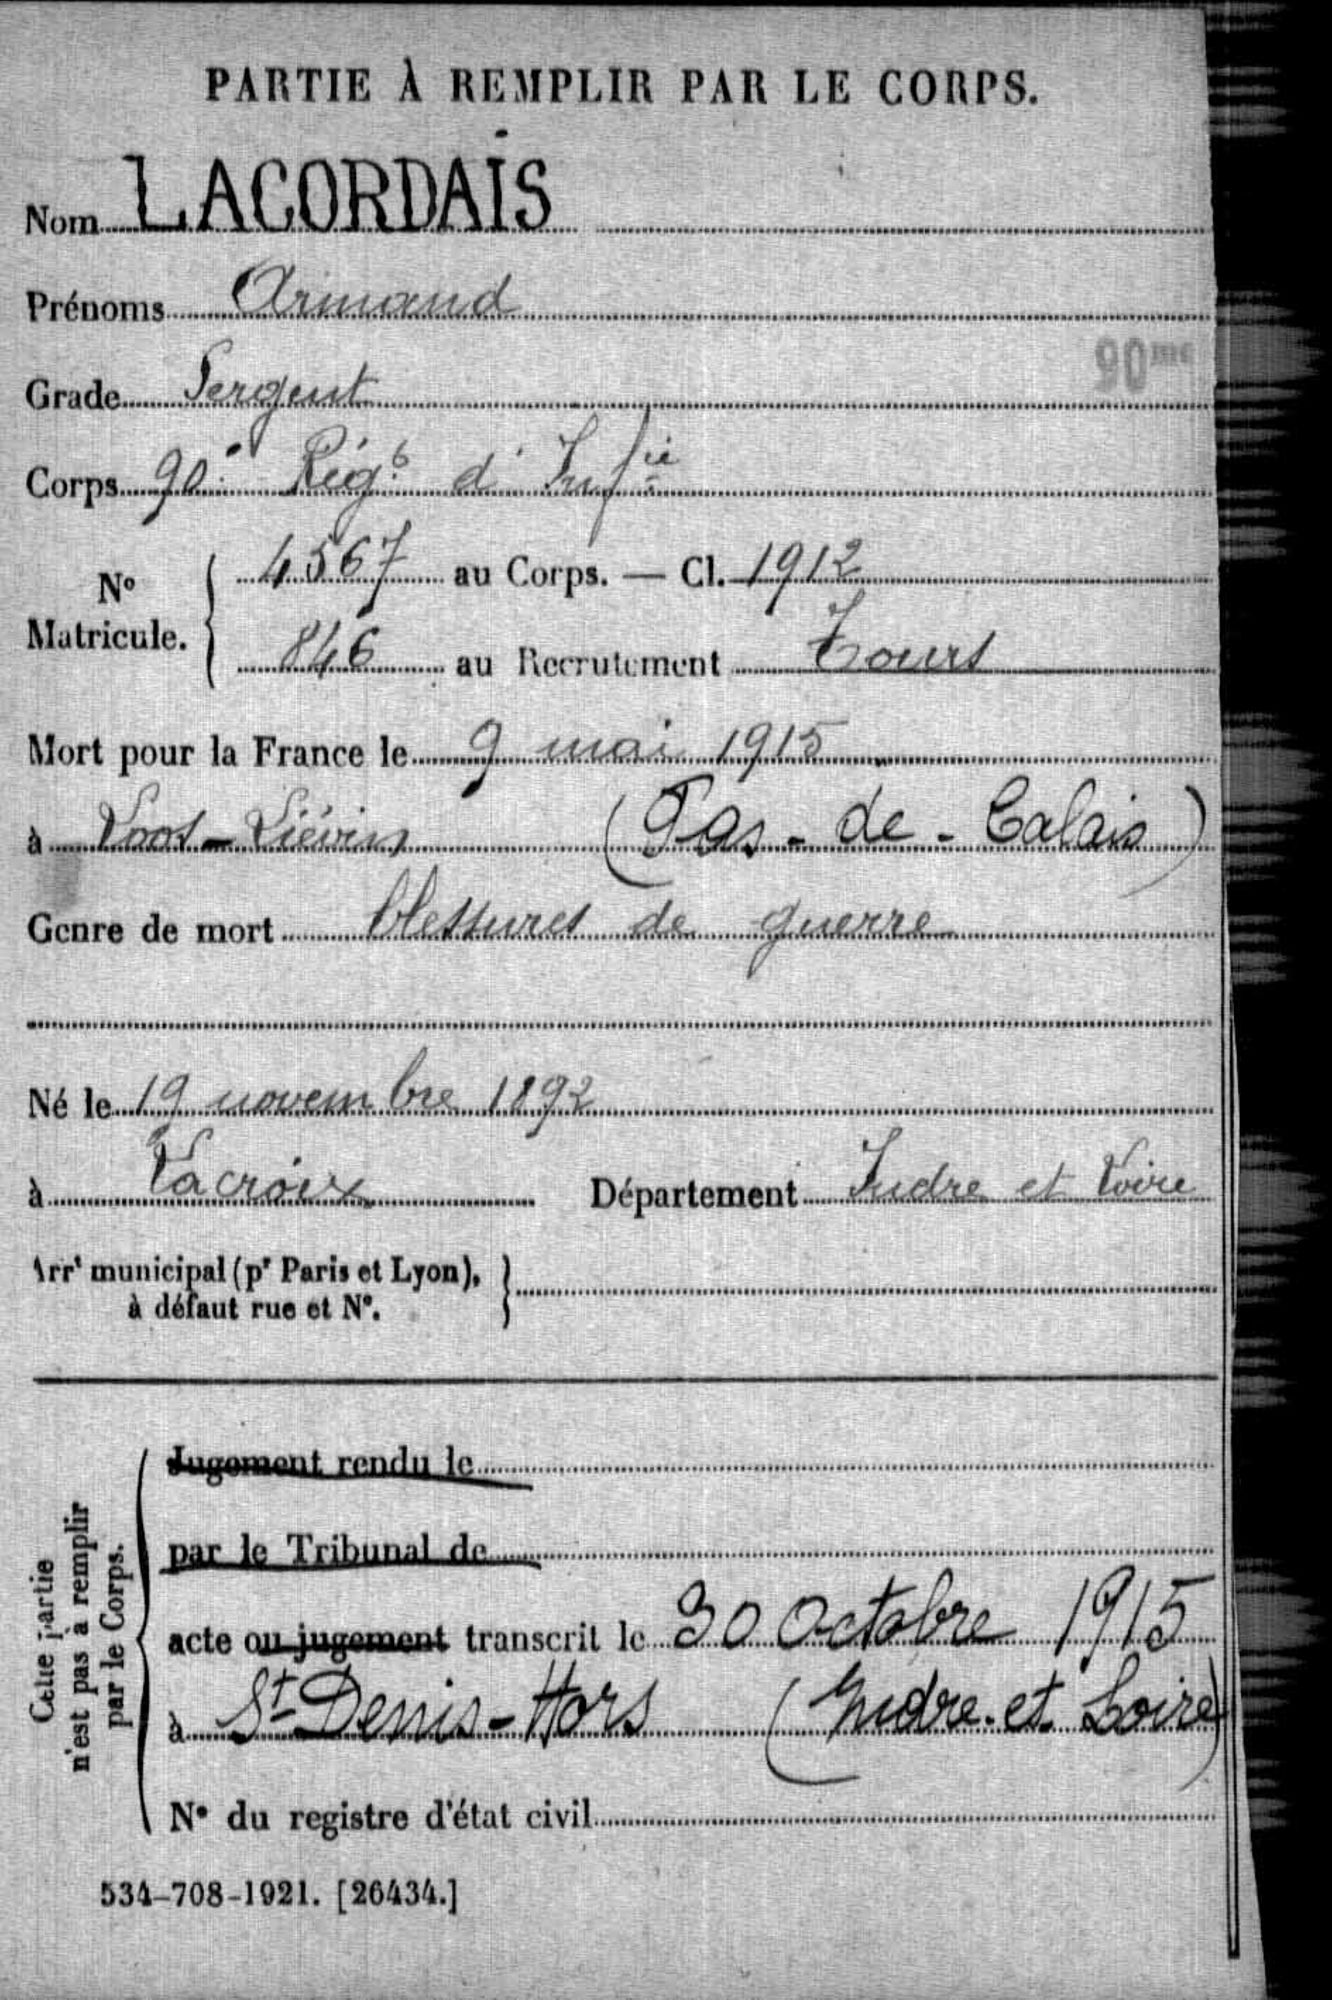 PARTIE À REMPLIR PAR LE CORPS.
Nom LACORDAIS
Prénoms Armand
90me
Grade Sergent
Corps 90e Régt d'Infie
No Matricule. 4567 au Corps. — Cl. 1912
846 au Recrutement Tours
Mort pour la France le 9 mai 1915
à Loos-Liévin (Pas-de-Calais)
Genre de mort blessures de guerre
Né le 19 novembre 1892
à Lacroix Département Indre et Loire
Arrt municipal (pr Paris et Lyon),
à défaut rue et No.
Cette partie
n'est pas à remplir
par le Corps.
Jugement rendu le
par le Tribunal de
acte ou jugement transcrit le 30 Octobre 1915
à St Denis-Hors (Indre-et-Loire)
No du registre d'état civil
534-708-1921. [26434.]